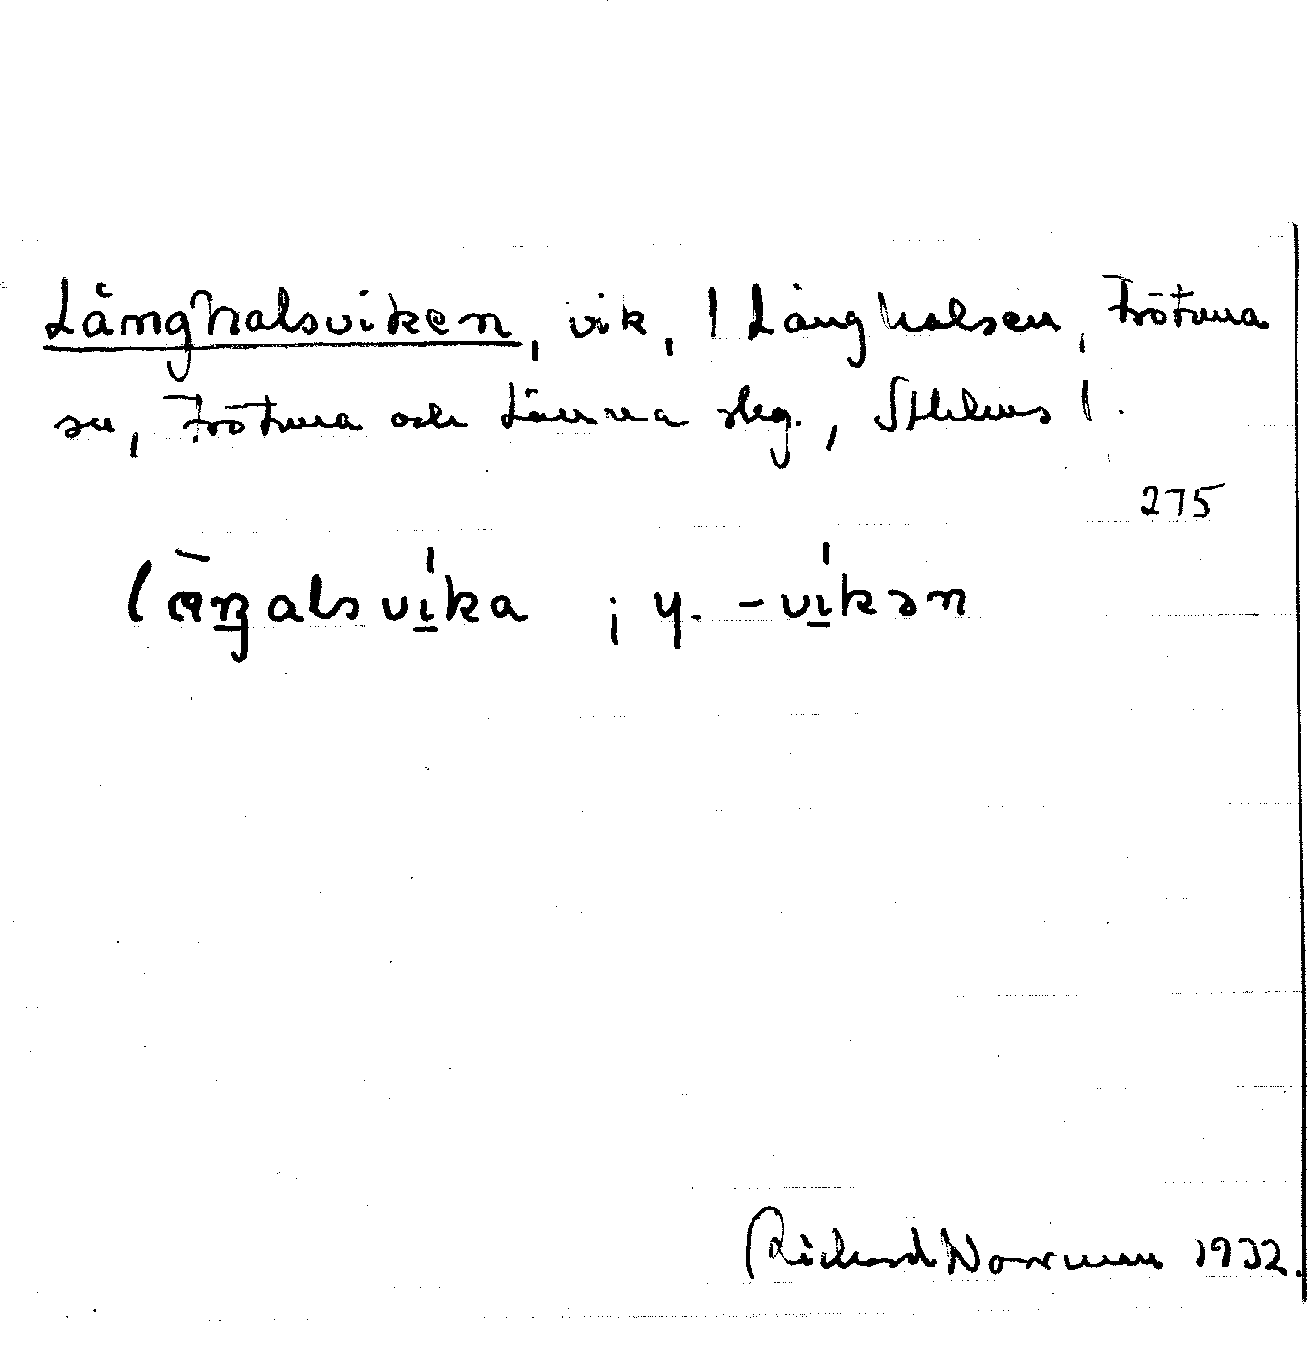 Långhalsviken, vik, | Långhalsen, Frötuna
sn, Frötuna och Länna skg., Sthlms l.
275
låŋalsvika ; y. -vikən
Richard Norrman 1932.